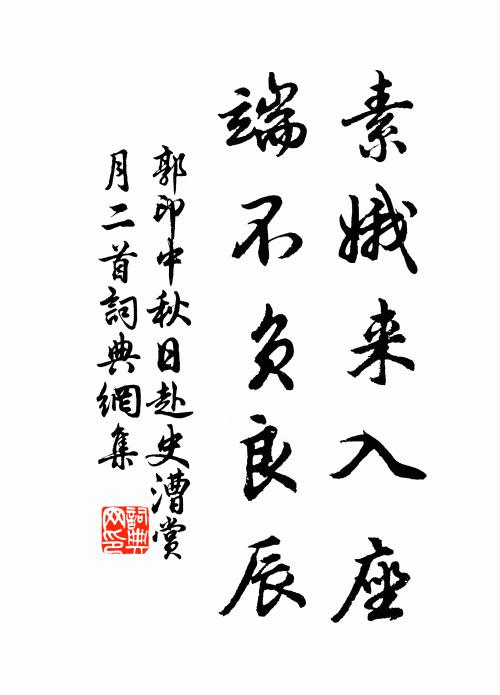 素娥来入座
端不负良辰
郭印中秋日赴史漕赏
月二首詞典網集
詞典网印